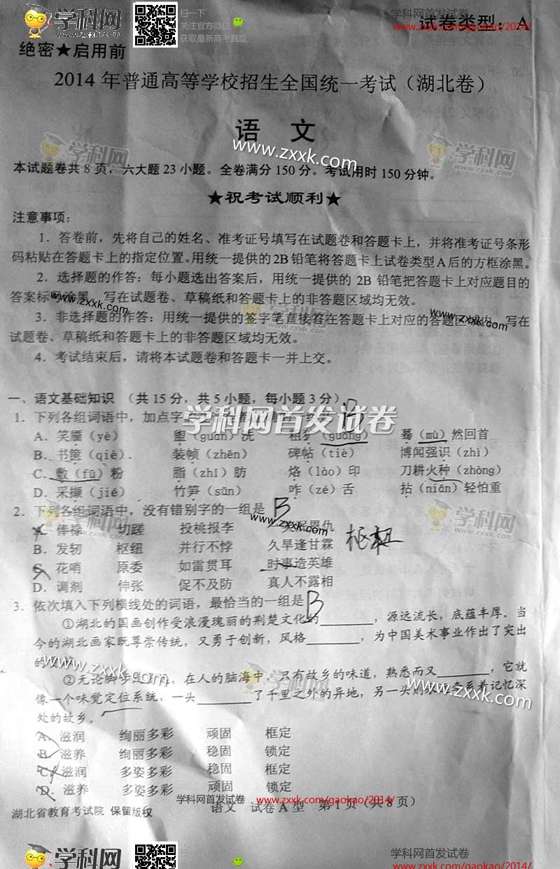 学科网
试卷类型：A
绝密★启用前
2014年普通高等学校招生全国统一考试（湖北卷）
语 文
www.zxxk.com
本试题卷共8页，六大题23小题。全卷满分150分。考试用时150分钟。
★祝考试顺利★
注意事项：
1．答卷前，先将自己的姓名、准考证号填写在试题卷和答题卡上，并将准考证号条形
码粘贴在答题卡上的指定位置。用统一提供的2B铅笔将答题卡上试卷类型A后的方框涂黑。
2．选择题的作答：每小题选出答案后，用统一提供的2B铅笔把答题卡上对应题目的
答案标 写在试题卷、草稿纸和答题卡上的非答题区域均无效。
3．非选择题的作答：用统一提供的签字笔直接答在答题卡上对应的答题区 写在
试题卷、草稿纸和答题卡上的非答题区域均无效。
4．考试结束后，请将本试题卷和答题卡一并上交。
一、语文基础知识（共15分，共5小题，每小题3分）
1．下列各组词语中，加点字 B
学科网首发试卷
A．笑靥（yè） 盥（guàn）洗 粗犷（guǎng） 蓦（mù）然回首
B．书箧（qiè） 装帧（zhēn） 碑帖（tiè） 博闻强识（zhì）
C．敷（fū）粉 脂（zhī）肪 烙（lào）印 刀耕火种（zhòng）
D．采撷（jié） 竹笋（sǔn） 咋（zé）舌 拈（niān）轻怕重
2．下列各组词语中，没有错别字的一组是 B
A．俸禄 切蹉 投桃报李 恩仇
www.zxxk.com
B．发轫 枢纽 并行不悖 久旱逢甘霖 枢纽
C．花哨 原委 如雷贯耳 时事造英雄
D．调剂 伸张 促不及防 真人不露相
3．依次填入下列横线处的词语，最恰当的一组是 B
①湖北的国画创作受浪漫瑰丽的荆楚文化的________，源远流长，底蕴丰厚。当
今的湖北画家既尊崇传统，又勇于创新，风格________，为中国美术事业作出了突出
的
②无论脚步 ，在人的脑海中，只有故乡的味道，熟悉而又________，它就
像一个味觉定位系统，一头________了千里之外的异地，另一头 记忆深
处的故乡。
www.zxxk.com
A．滋润 绚丽多彩 顽固 框定
B．滋养 绚丽多彩 稳固 锁定
C．滋润 多姿多彩 稳固 框定
D．滋养 多姿多彩 顽固 锁定
学科网首发试卷 www.zxxk.com/gaokao/2014/
湖北省教育考试院 保留版权 语文 试卷A型 第1页（共8页）
学科网 学科网首发试卷 学科网
www.zxxk.com/gaokao/2014/